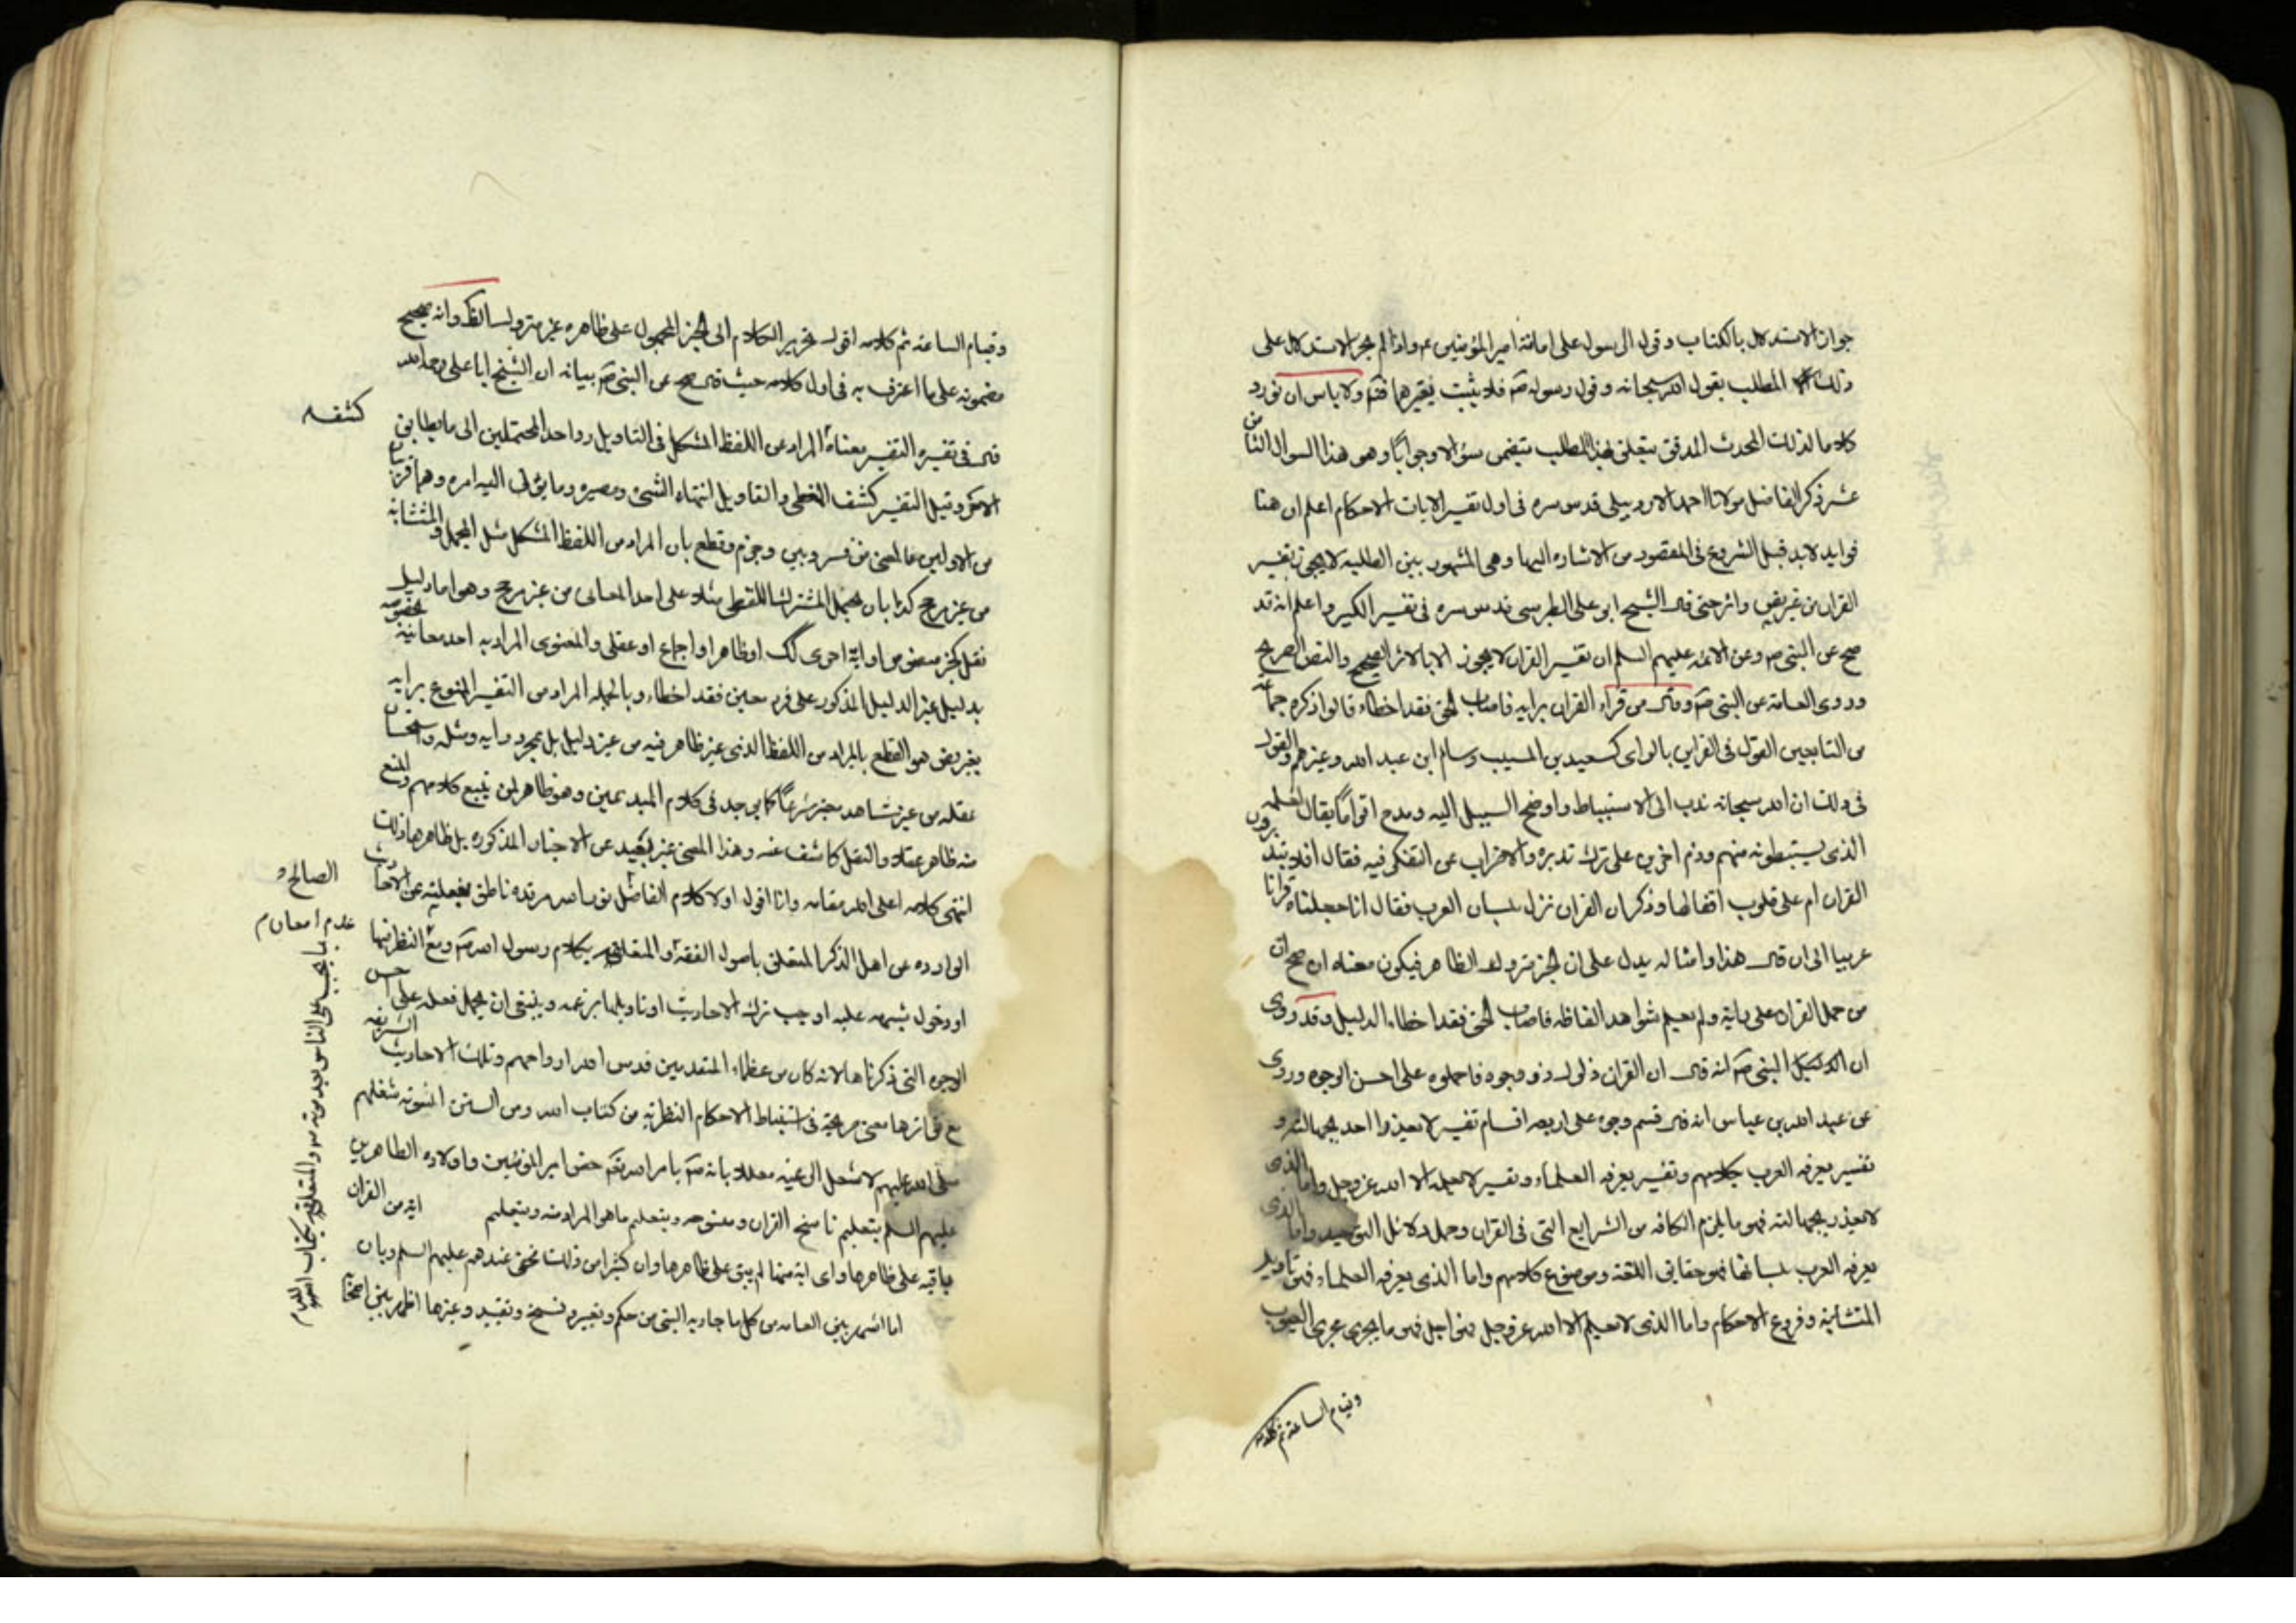 جواز الاستدلال بالكتاب وقول الرسول على امامة امير المؤمنين ع واذا لم يجز الاستدلال على
ذلك المطلب بقول الله سبحانه وقول رسوله ص فلا يثبت بغيرهما فتم ولا باس ان نورد
كلاما لذلك المحدث المدقق يتعلق بهذا المطلب يتضمن سؤالا وجوابا وهو هذا السوال الثامن
عشر ذكر الفاضل مولانا احمد الاردبيلى قدس سره فى اول تفسير الايات الاحكام اعلم ان هنا
فوايد لابد قبل الشروع فى المقصود من الاشاره اليها وهى المشهور بين الطلبه لا يجوز تفسير
القران من غير نص واثر حتى قال الشيخ ابو على الطبرسى قدس سره فى تفسير الكبير واعلم انه قد
صح عن النبى ص وعن الائمه عليهم السلم ان تفسير القران لا يجوز الا بالاثر الصحيح والنص الصريح
وروى العامة عن النبى ص وقال من قراء القران برايه فاصاب الحق فقد اخطاء قالوا ذكره جماعة
من التابعين القول فى القران بالراى كسعيد بن المسيب وسالم ابن عبد الله وغيرهم والقول
فى ذلك ان الله سبحانه ندب الى الاستنباط واوضح السبيل اليه ومدح اقواما يقال لعلمه
الذى يستنبطونه منهم وذم اخرين على ترك تدبره والاضراب عن التفكر فيه فقال افلا يتدبرون
القران ام على قلوب اقفالها وذكر ان القران نزل بلسان العرب فقال انا جعلناه قرانا
عربيا الى ان قال هذا وامثاله يدل على ان الخبر متروك الظاهر فيكون معناه ان صح ان
من حمل القران على رايه ولم يعلم شواهد الفاظه فاصاب الحق فقد اخطاء الدليل وقد روى
ان النبى ص انه قال ان القران ذلول ذو وجوه فاحملوه على احسن الوجوه وروى
عن عبد الله بن عباس انه قال قسم وجوه على اربعه اقسام تفسير لا يعذر احد بجهالته و
تفسير يعرفه العرب بكلامهم وتفسير يعرفه العلماء وتفسير لا يعلمه الا الله عز وجل واما الذى
لا يعذر بجهالته فهو ما يلزم الكافه من الشرايع التى فى القران وجمل دلائل التوحيد واما الذى
يعرفه العرب بلسانها فهو حقايق اللغة وموضوع كلامهم واما الذى يعرفه العلماء فهو تاويل
المتشابه وفروع الاحكام واما الذى لا يعلم الا الله عز وجل فهو ما يجرى مجرى الغيوب
وقيام الساعة تم كلامه
وقيام الساعه تم كلامه اقول تحرير الكلام الى الخبر المحمول على ظاهره غير متروك الظ وانه صحيح
مضمونه على ما اعترف به فى اول كلامه حيث قال صح عن النبى ص بيانه ان الشيخ ابا على رحمه الله
قال فى تفسيره التفسير معناه المراد من اللفظ المشكل فى التاويل رد احد المحتملين الى ما يطابق
كشف
الاخر وقيل التفسير كشف المغطى والتاويل انتهاء الشئ ومصيره وما يؤل اليه امره وهما قريبان
من الاولين فالمعنى من فسر وبين وجزم وقطع بان المراد من اللفظ المشكل مثل المجمل والمتشابه
من غير مرجح كذا بان يحمل المشترك اللفظى مثلا على احد المعانى من غير مرجح وهو اما دليل
نقلى كخبر منصوص او اية اخرى كك او ظاهر او اجماع او عقلى والمعنوى المراد به احد معانيه بخصوصه
بدليل غير الدليل المذكور على فرد معين فقد اخطاء وبالجمله المراد من التفسير الممنوع برايه
بغير نص هو القطع بالمراد من اللفظ الذى غير ظاهر فيه من غير دليل بل بمجرد رايه وميله واستحسان
عقله من غير شاهد معتبر شرعا كما يوجد فى كلام المبدعين وهو ظاهر لمن يتبع كلامهم والمنع
منه ظاهر عقلا والنقل كاشف عنه وهذا المعنى غير بعيد عن الاخبار المذكوره بل ظاهرها ذلك
انتهى كلامه اعلى الله مقامه وانا اقول اولا كلام الفاضل نور الله مرقده ناطق بغفلته عن الاحاديث
الوارده عن اهل الذكر المتعلق باصول الفقه والمتعلق بكلام رسول الله ص ومع النظر فيها
الصالح و
عدم امعان م
او دخول شبهه عليه اوجب ترك الاحاديث او تاويلها بزعمه وينبغى ان يحمل فعله على احسن
الوجوه التى ذكرناها لانه كان من عظماء المتقدمين قدس الله ارواحهم وتلك الاحاديث الشريفه
مع تواترها معنى صريحة فى استنباط الاحكام النظرية من كتاب الله ومن السنن النبويه شغلهم
صلى الله عليهم لا شغل الى غيره معللا بانه ص بامر الله تعم خص امير المؤمنين واولاده الطاهرين
عليهم السلم بتعليم ناسخ القران ومنسوخه وبتعليم ما هو المراد منه وبتعليم ايه من القران
باقيه على ظاهرها واى اية منها لم يبق على ظاهرها وان كثيرا من ذلك مخفى عندهم عليهم السلم وبان
اما اشتهر بين العامه من كل ما جاء به النبى من حكم وتغيير ونسخ وتقييد وغيرها اظهر بين اصحابه
ما يجب على الناس بعد موته ص والمتعلق بكتاب الله